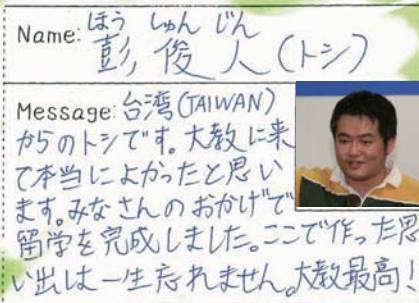 ほう しゅん じん
Name: 彭俊人(トシ)
Message: 台湾(TAIWAN)
からのトシです。大教に来
て本当によかったと思い
ます。みなさんのおかげで
留学を完成しました。ここで作った思
い出は一生忘れません。大教最高!